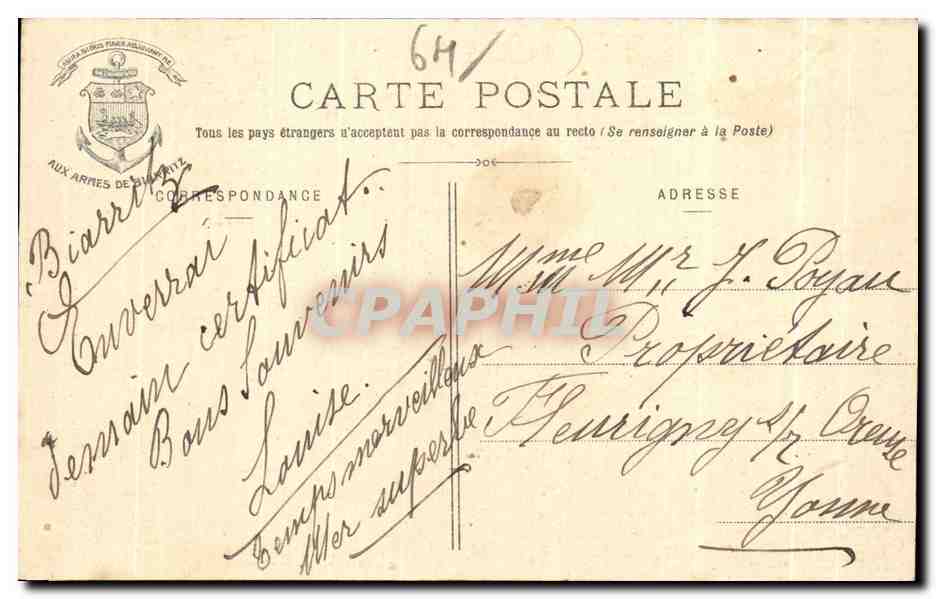 64/
AUX ARMES DE BIARRITZ
CARTE POSTALE
Tous les pays étrangers n'acceptent pas la correspondance au recto (Se renseigner à la Poste)
CORRESPONDANCE
ADRESSE
Biarritz
Enverrai
demain certificat..
Bons Souvenirs
Louise.
Temps merveilleux
Mer superbe
Mme Mr J. Poyau
Propriétaire
Fleurigny s/ Oreuse
Yonne
CPAPHIL